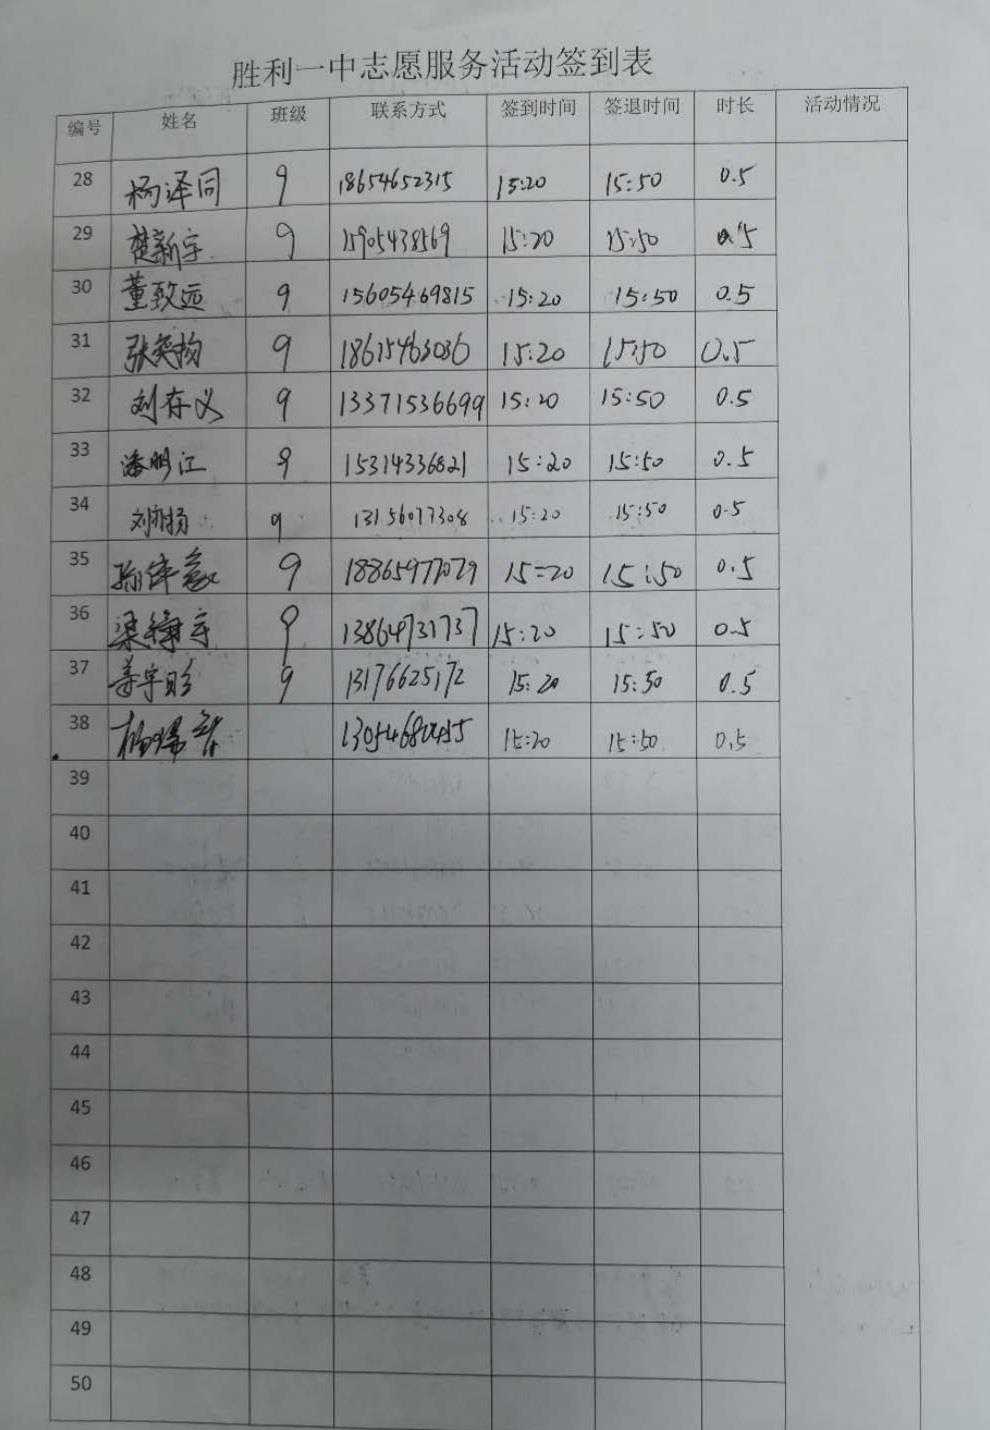 胜利一中志愿服务活动签到表
编号 姓名 班级 联系方式 签到时间 签退时间 时长 活动情况
28 杨泽同 9 18654652315 15:20 15:50 0.5
29 楚新宇 9 15905438569 15:20 15:50 0.5
30 董致远 9 15605469815 15:20 15:50 0.5
31 张奕扬 9 18615463036 15:20 15:50 0.5
32 刘存义 9 13371536699 15:20 15:50 0.5
33 潘明江 9 15314336821 15:20 15:50 0.5
34 9 13156077308 15:20 15:50 0.5
35 9 18865977079 15:20 15:50 0.5
36 9 13864731737 15:20 15:50 0.5
37 9 13176625172 15:20 15:50 0.5
38 15:20 15:50 0.5
39
40
41
42
43
44
45
46
47
48
49
50